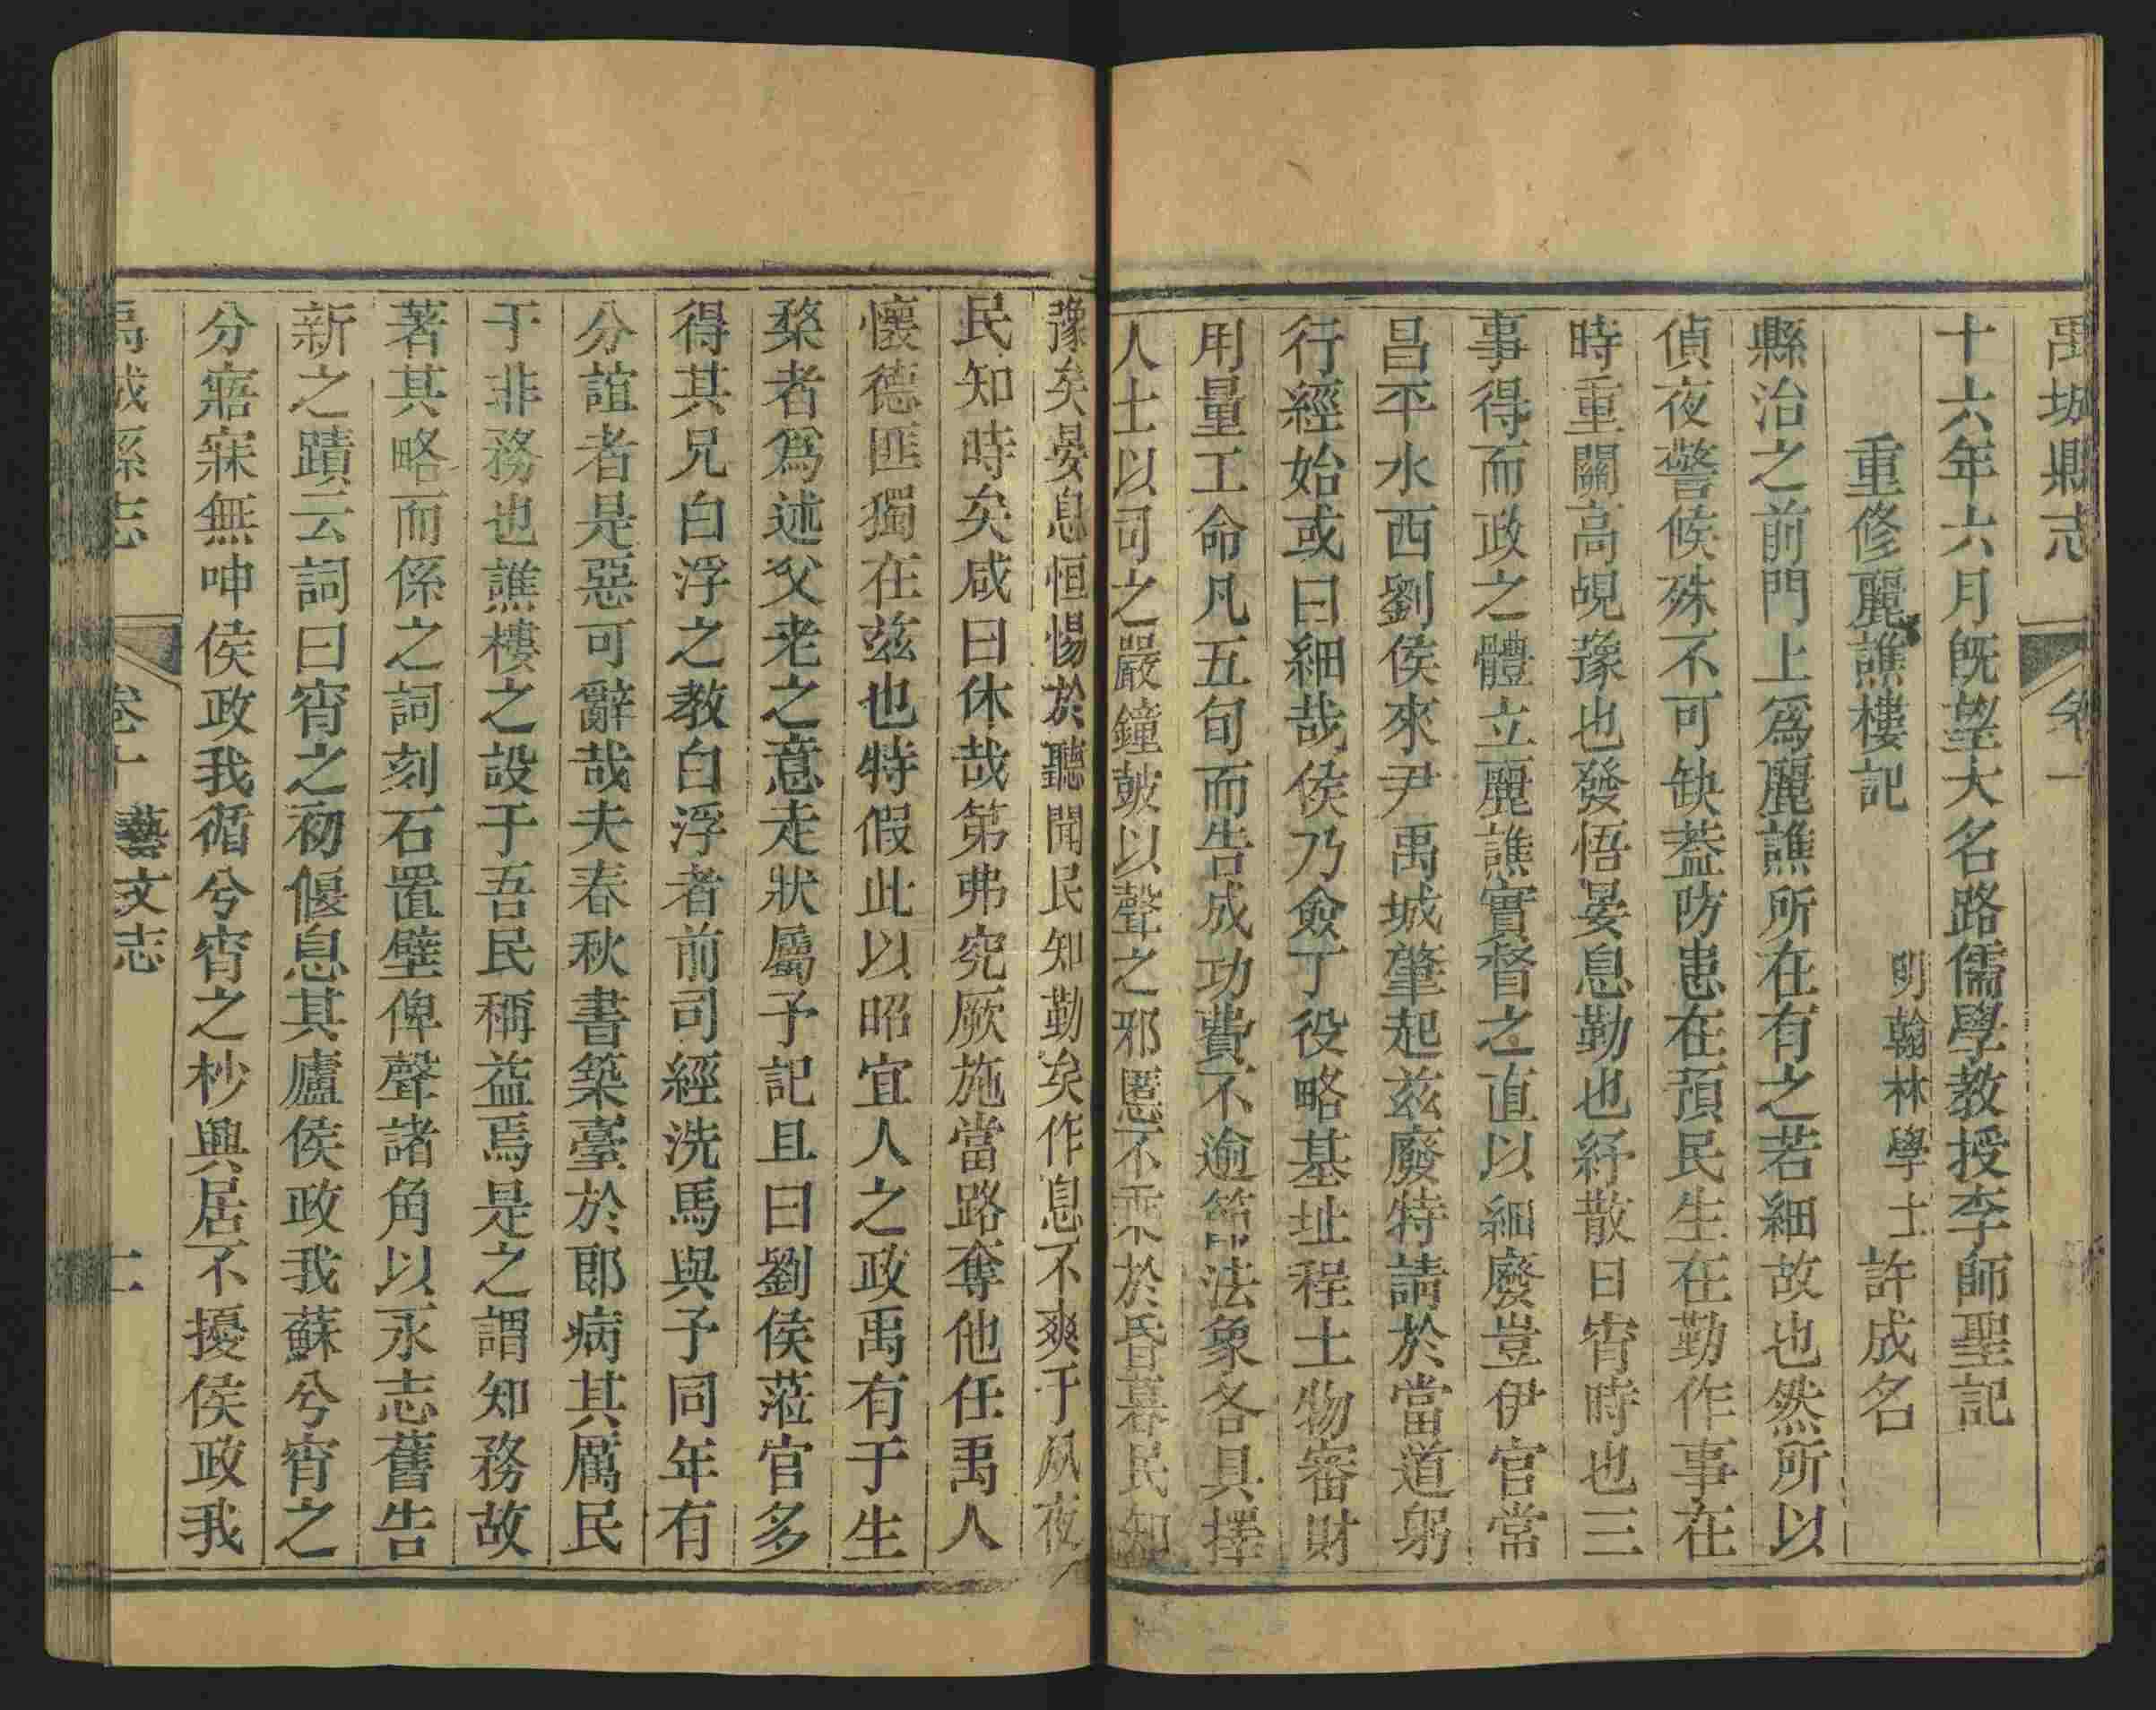 禹城縣志
卷十
十六年六月旣望大名路儒學教授李師聖記
重修麗譙樓記
明翰林學士許成名
縣治之前門上爲麗譙所在有之若細故也然所以
偵夜警候殊不可缺葢防患在預民生在勤作事在
時重關高峴豫也發悟晏息勤也紓散日宵時也三
事得而政之體立麗譙實督之直以細廢豈伊官常
昌平水西劉侯來尹禹城肇起兹廢特請於當道躬
行經始或曰細哉侯乃僉丁役略基址程土物審財
用量工命凡五旬而告成功費不逾節法象各具擇
人士以司之嚴鐘鼓以聲之邪慝不乘於昏暮民知
豫矣晏息恒惕於聽聞民知勤矣作息不爽于夙夜
民知時矣咸曰休哉第弗究厥施當路奪他任禹人
懷德匪獨在兹也特假此以昭宜人之政禹有于生
桼者爲述父老之意走狀屬予記且曰劉侯蒞官多
得其兄白浮之教白浮者前司經洗馬與予同年有
分誼者是惡可辭哉夫春秋書築臺於郎病其厲民
于非務也譙樓之設于吾民稱益焉是之謂知務故
著其略而係之詞刻石置壁俾聲諸角以永志舊告
新之蹟云詞曰宵之初偃息其廬侯政我蘇兮宵之
分寤寐無呻侯政我循兮宵之杪興居不擾侯政我
禹城縣志
卷十
藝文志